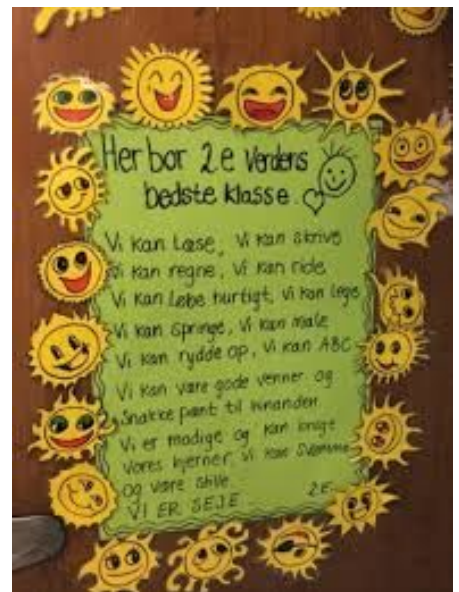 Her bor 2e Verdens
bedste klasse.
Vi kan Læse, Vi kan skrive
Vi kan regne, Vi kan ride
Vi kan Løbe hurtigt, Vi kan lege
Vi kan springe, Vi kan male
Vi kan rydde op, Vi kan ABC
Vi kan være gode venner og
Snakke pænt til hinanden
Vi er modige og kan bruge
vores hjerner, Vi kan Svømme
og være stille
VI ER SEJE 2E